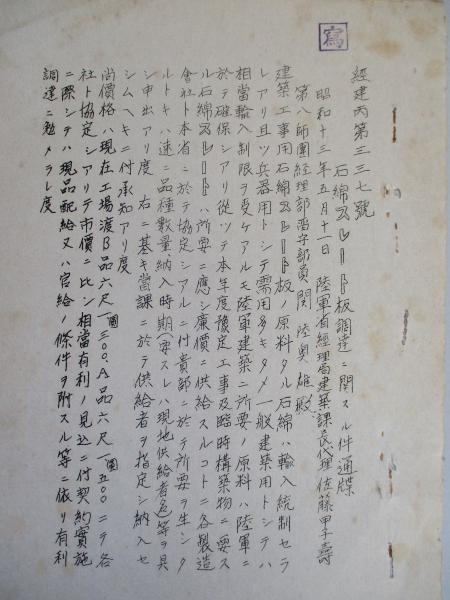 寫
經建丙第三三七號
石綿スレート板調達ニ關スル件通牒
昭和十三年五月十一日 陸軍省經理局建築課長代理佐藤甲子壽
第八師團經理部留守部員 関 陸奥雄殿
建築工事用石綿スレート板ノ原料タル石綿ハ輸入統制セラ
レアリ且ツ兵器用トシテ需用多キタメ一般建築用トシテハ
相當輸入制限ヲ受ケアルモ陸軍建築ニ所要ノ原料ハ陸軍ニ
於テ確保シアリ從ツテ本年度豫定工事及臨時構築物ニ要ス
ル石綿スレートハ所要ニ應シ廉價ニ供給スルコトニ各製造
會社ト本省ニ於テ協定シアルニ付貴部ニ於テ所要ヲ生シタ
ルトキハ速ニ品種數量、納入時期(要スレハ現地供給者名)等ヲ具
シ申出アリ度 右ニ基キ當課ニ於テ供給者ヲ指定シ納入セ
シムヘキニ付承知アリ度
尚價格ハ現在工場渡B品六尺一圓三〇〇、A品六尺一圓五〇〇ニテ各
社ト協定シアリテ市價ニ比シ相當有利ノ見込ニ付契約實施
ニ際シテハ現品配給又ハ官給ノ條件ヲ附スル等ニ依リ有利
調達ニ勉メラレ度